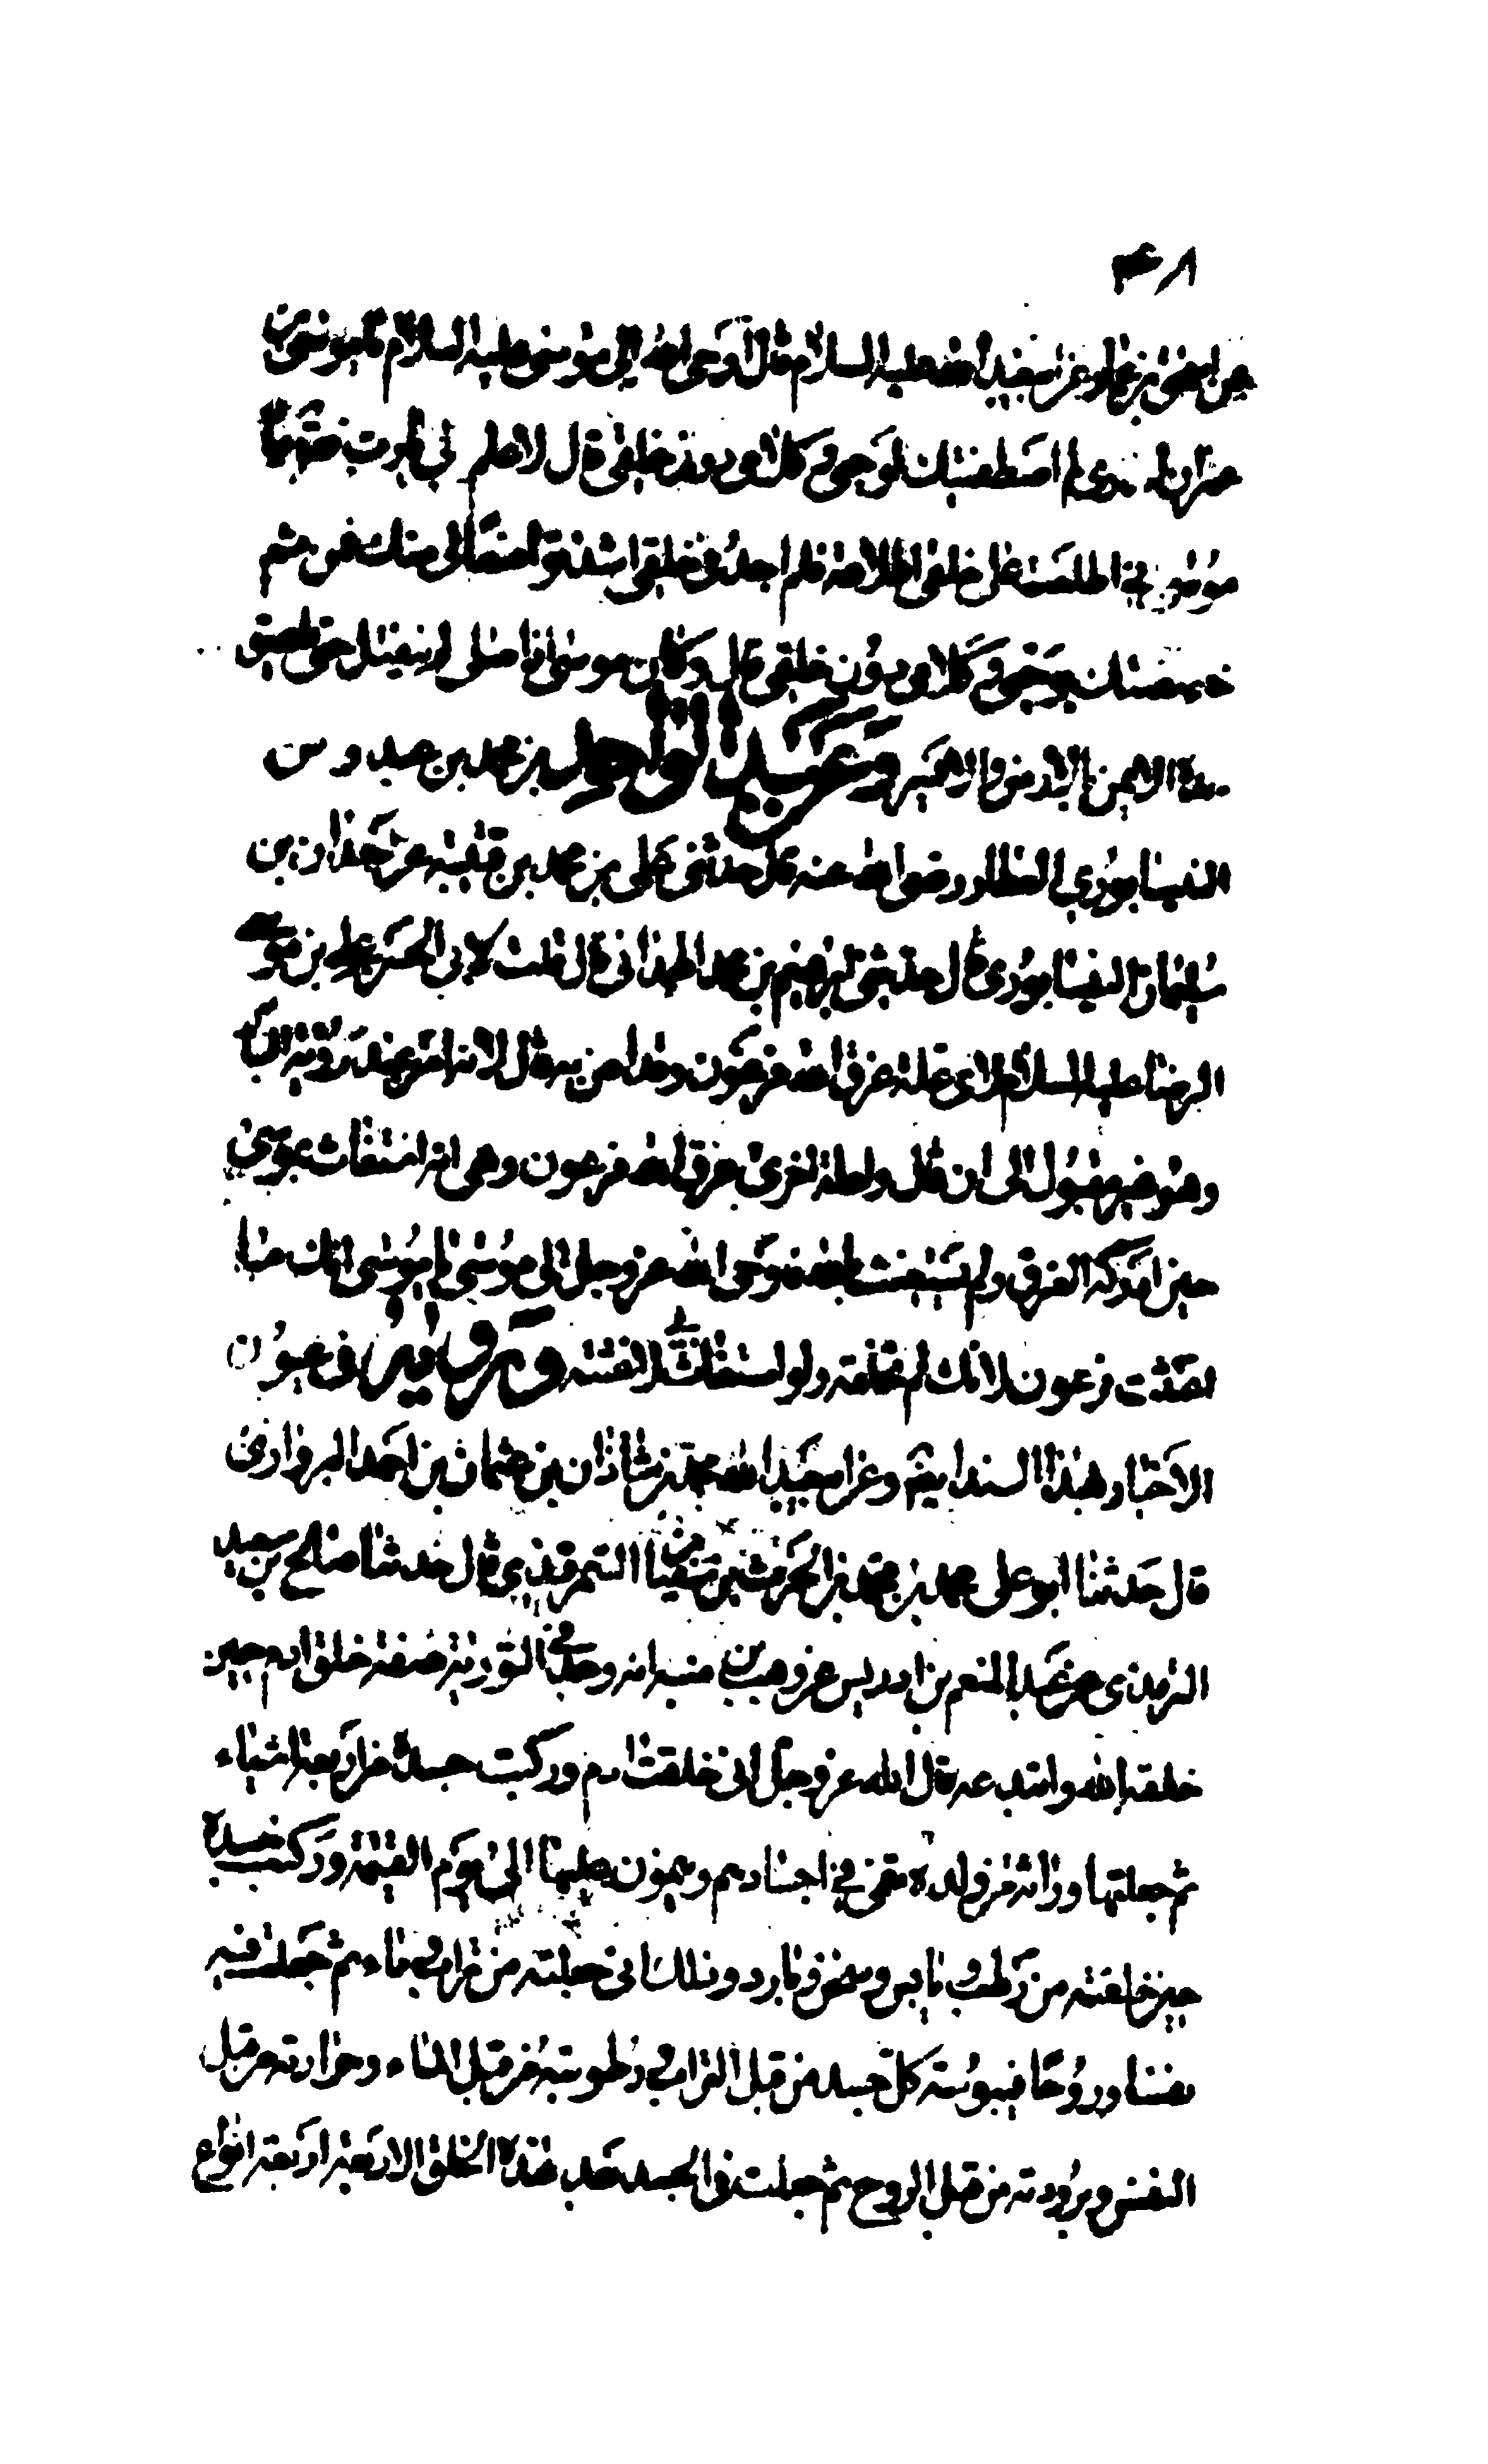 ٣٨
عن اسحق بن عمار عن ابي عبد الله عليه السلام قال اوحى الله الى موسى عليه السلام يا موسى بن
عمران لم اصطفيتك لوحيي وكلامي دون خلقي قال لا علم لي يا رب فقال يا
موسى اني اطلعت على خلقي اطلاعة فلم اجد في خلقي اشد تواضعا لي منك فمن ثم
خصصتك بوحيي وكلامي دون خلقي قال وكان موسى اذا صلى لم ينفتل حتى يلصق
خده الايمن بالارض والايسر وعن عبد الواحد بن محمد بن عبدوس
النيسابوري العطار رضي الله عنه قال حدثني علي بن محمد بن قتيبة عن حمدان بن
سليمان النيسابوري قال حدثني ابراهيم بن محمد الهمداني قال قلت لابي الحسن علي بن موسى
الرضا عليه السلام لاي علة غرق الله فرعون وقد امن به قال لانه امن عند رؤية الباس
وهو غير مقبول الى ان قال ولعلة اخرى غرق الله فرعون وهي انه استغاث بموسى
حين ادركه الغرق ولم يستغث بالله فاوحى الله عز وجل الى موسى يا موسى انك ما
اغثت فرعون لانك لم تخلقه ولو استغاث بي لاغثته ورواه في عيون
الاخبار بهذا السند ايضا وعن ابي عبد الله محمد بن شاذان بن عثمان بن احمد البروادي
قال حدثنا ابو علي محمد بن محمد بن الحرث بن سفيان السمرقندي قال حدثنا صالح بن سعيد
الترمذي عن عبد المنعم بن ادريس عن وهب بن منبه انه وجد في التورية صفة خلق ادم حين
خلقه الله وابتدعه قال الله عز وجل اني خلقت ادم وركبت جسده من اربعة اشياء
ثم جعلتها وراثة في ولده تنمي في اجسادهم وينمون عليها الى يوم القيمة وركبت جسده
حين خلقته من رطب ويابس وسخن وبارد وذلك اني خلقته من تراب وماء ثم جعلت فيه
نفسا وروحا فيبوسة كل جسد من قبل التراب ورطوبته من قبل الماء وحرارته من قبل
النفس وبرودته من قبل الروح ثم خلقت في الجسد بعد هذه الخلق الاربعة اربعة انواع